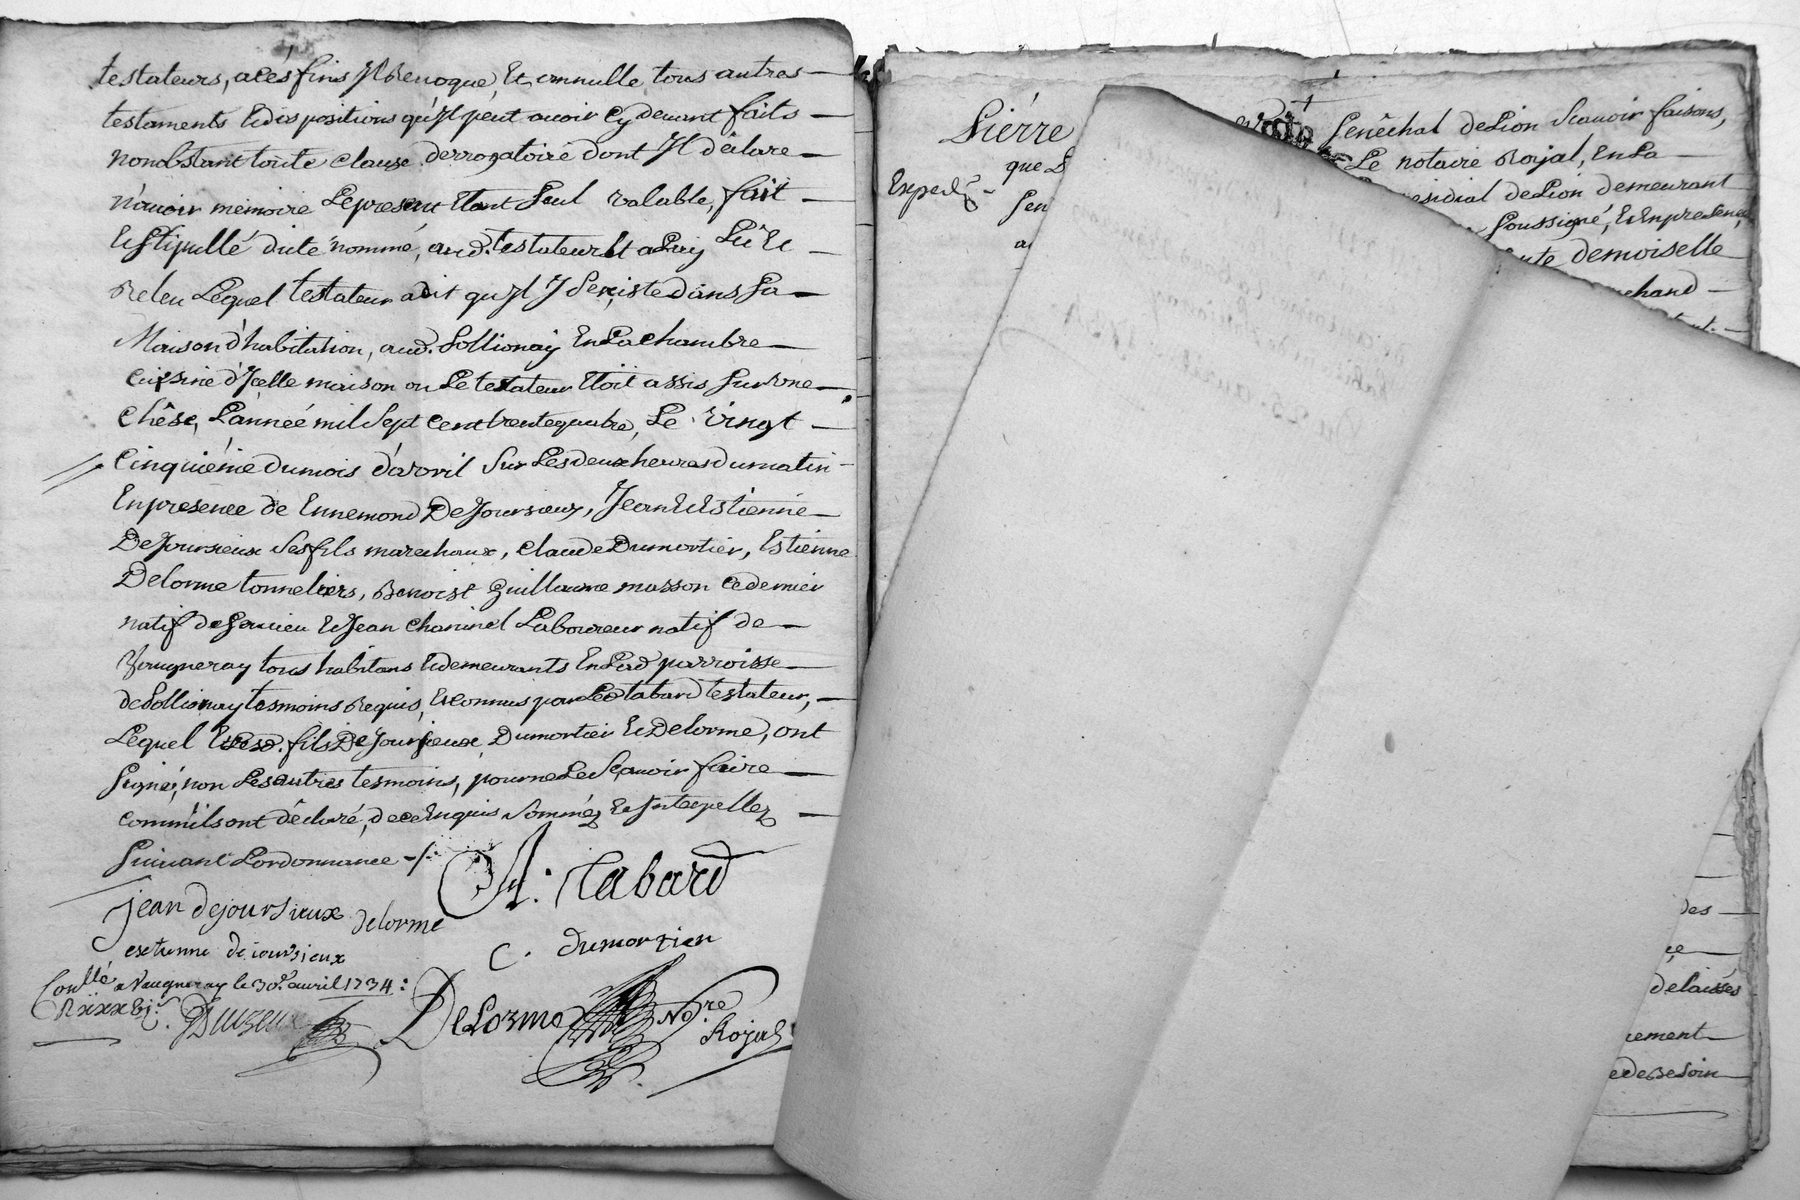 testateurs, a ces fins Jl Revoque, Et annulle tous autres
testaments Et dispositions qu'Jl peut avoir Cy devant faits
nonobstant toute clause derrogatoire dont Jl déclare
n'avoir mémoire Le present Etant Seul valable, fait
Et Stipullé dicté nommé, aud. testateur Et a Luy Lû Et
Releu Lequel testateur a dit qu'Jl J Persiste dans Sa
Maison d'habitation, aud. Sollionay En La chambre
cuisine d'Jcelle maison ou Le testateur Etoit assis Sur une
Chêse, L'année mil Sept Cent trente quatre, Le vingt
Cinquiéme du mois d'avril Sur Les deux heures du matin
En presence de Ennemond DeJoursieux, Jean Et Estienne
DeJoursieux Ses fils marechaux, claude Dumortier, Estienne
Delorme tonneliers, Benoist Guillaume masson Ce dernier
natif de Et Jean chaninel Laboureur natif de
Vaugneray tous habitans Et demeurants En Lad. parroisse
de Sollionay tesmoins Requis, Et connus par Led. tabard testateur,
Lequel Et Lesd. fils DeJoursieux, Dumortier Et Delorme, ont
Signé, non Les autres tesmoins, pour ne Le Sçavoir faire
comm'ils ont déclaré, de ce Enquis Sommés Et Jnterpellez
Suivant Lordonnance
A. tabard
jean dejoursieux delorme
estienne de joursieux
C. dumortier
Conllé a Vaugneray le 30e avril 1734:
DeLorme No.re Royal
Pierre Senêchal de Lion Scavoir faisons,
que Le notaire Royal, En La
Exped.é Sen presidial de Lion demeurant
Soussigné, Et En presence,
demoiselle
des
delaissés
de Besoin